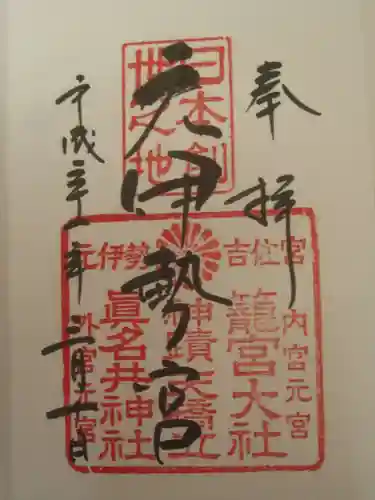 奉拝
元伊勢宮
平成二十一年三月十日
日本創
地之地
吉佐宮
元伊勢
内宮元宮
籠宮大社
神蹟天橋立
眞名井神社
外宮元宮